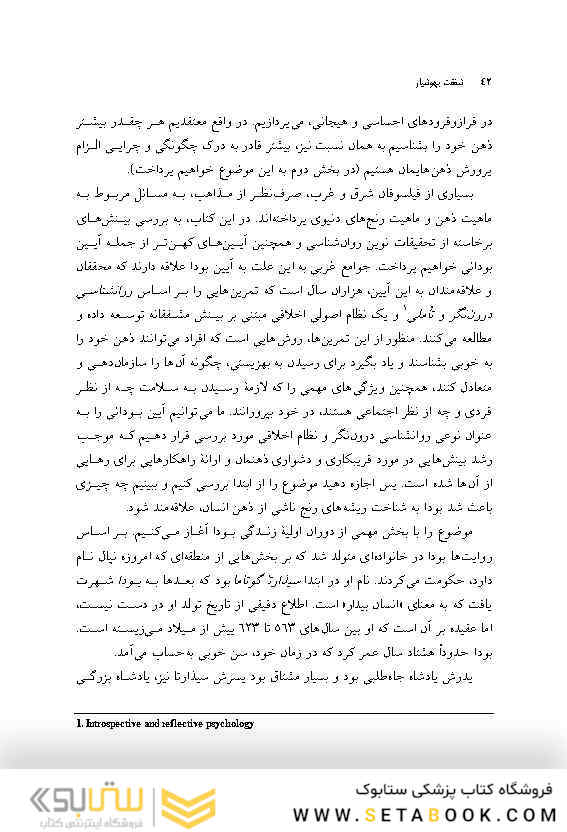 ٤٢ شفقت بهوشیار
در فرازوفرودهای احساسی و هیجانی، می‌پردازیم. در واقع معتقدیم هر چقدر بیشتر
ذهن خود را بشناسیم به همان نسبت نیز، بیشتر قادر به درک چگونگی و چرایی الزام
پرورش ذهن‌هایمان هستیم (در بخش دوم به این موضوع خواهیم پرداخت).
بسیاری از فیلسوفان شرق و غرب، صرف‌نظر از مذاهب، به مسائل مربوط به
ماهیت ذهن و ماهیت رنج‌های دنیوی پرداخته‌اند. در این کتاب، به بررسی بینش‌های
برخاسته از تحقیقات نوین روان‌شناسی و همچنین آیین‌های کهن‌تر از جمله آیین
بودائی خواهیم پرداخت. جوامع غربی به این علت به آیین بودا علاقه دارند که محققان
و علاقه‌مندان به این آیین، هزاران سال است که تمرین‌هایی را بر اساس روانشناسی
درون‌نگر و تأملی۱ و یک نظام اصولی اخلاقی مبتنی بر بینش مشفقانه توسعه داده و
مطالعه می‌کنند. منظور از این تمرین‌ها، روش‌هایی است که افراد می‌توانند ذهن خود را
به خوبی بشناسند و یاد بگیرد برای رسیدن به بهزیستی، چگونه آن‌ها را سازمان‌دهی و
متعادل کنند، همچنین ویژگی‌های مهمی را که لازمهٔ رسیدن به سلامت چه از نظر
فردی و چه از نظر اجتماعی هستند، در خود بپرورانند. ما می‌توانیم آیین بودائی را به
عنوان نوعی روانشناسی درون‌نگر و نظام اخلاقی مورد بررسی قرار دهیم که موجب
رشد بینش‌هایی در مورد فریبکاری و دشواری ذهنمان و ارائهٔ راهکارهایی برای رهایی
از آن‌ها شده است. پس اجازه دهید موضوع را از ابتدا بررسی کنیم و ببینیم چه چیزی
باعث شد بودا به شناخت ریشه‌های رنج ناشی از ذهن انسان، علاقه‌مند شود.
موضوع را با بخش مهمی از دوران اولیهٔ زندگی بودا آغاز می‌کنیم. بر اساس
روایت‌ها بودا در خانواده‌ای متولد شد که بر بخش‌هایی از منطقه‌ای که امروزه نپال نام
دارد، حکومت می‌کردند. نام او در ابتدا سیذارتا گوتاما بود که بعدها به بودا شهرت
یافت که به معنای «انسان بیدار» است. اطلاع دقیقی از تاریخ تولد او در دست نیست،
اما عقیده بر آن است که او بین سال‌های ٥٦٣ تا ٦٢٣ پیش از میلاد می‌زیسته است.
بودا حدوداً هشتاد سال عمر کرد که در زمان خود، سن خوبی به‌حساب می‌آمد.
پدرش پادشاه جاه‌طلبی بود و بسیار مشتاق بود پسرش سیذارتا نیز، پادشاه بزرگی
1. Introspective and reflective psychology
فروشگاه کتاب پزشکی ستابوک
WWW.SETABOOK.COM
ستابوک
فروشگاه اینترنتی کتاب